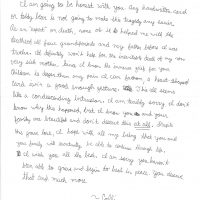 I am going to be honest with you. Any handwritten card
or teddy bear is not going to make the tragedy any easier.
As an "expert" on death, none of it helped me with the
deaths of four grandparents and my father before I was
It definitely won't help for the innocent death of my own
very sick mother. King I know the immense grief for your
children is deeper than my pain I can fathom, a heart-shaped
card isn't a good enough gesture. The old seems
like a condescending intrusion. I am terribly sorry. I don't
know why this happened, but I know you and your
family are beautiful and don't deserve this at all. Despite
this grave loss, I hope with all my being that you and
you family will eventually be able to continue through life.
I wish you all the best. I am sorry you haven't
been able to grow and begin to heal in peace. You deserve
that and much more.